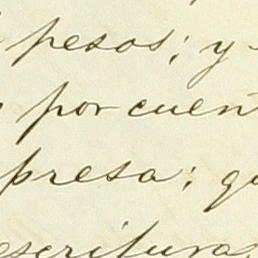 pesos; y
por cuen
presa; q
escrituras